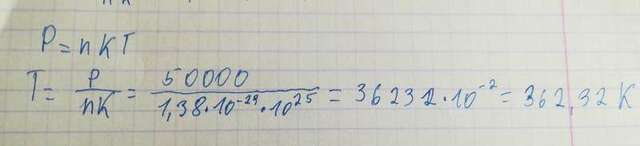 P=nKT
T= P/nK = 50000/1,38·10⁻²⁹·10²⁵ = 36232·10⁻² = 362,32 K